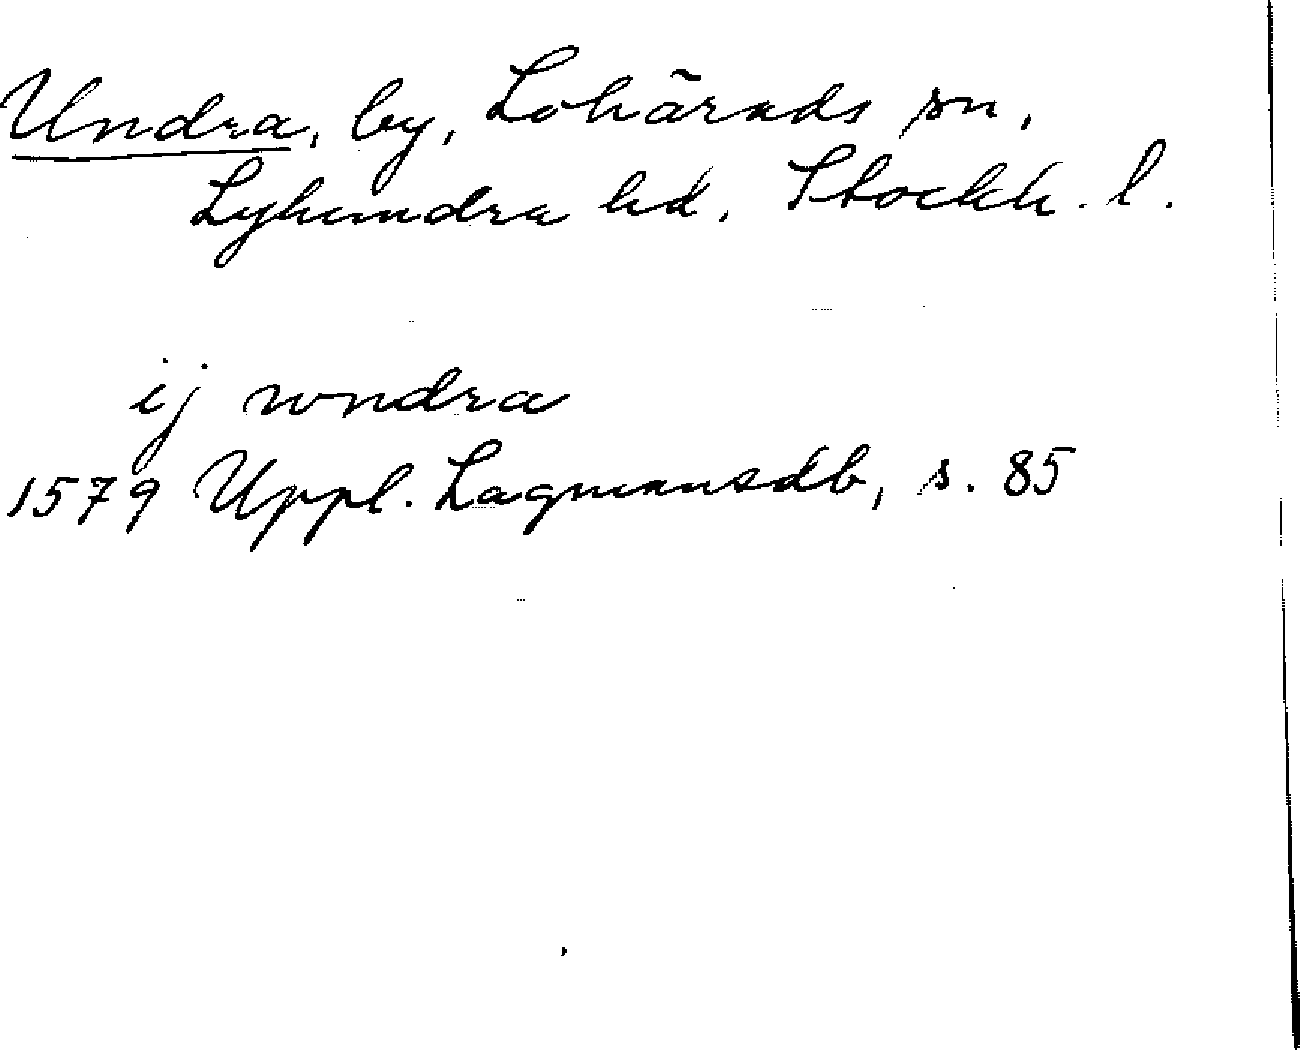 Undra, by, Lohärads sn,
Lyhundra hd, Stockh. l.
ij wndra
1579 Uppl. Lagmansdb, s. 85